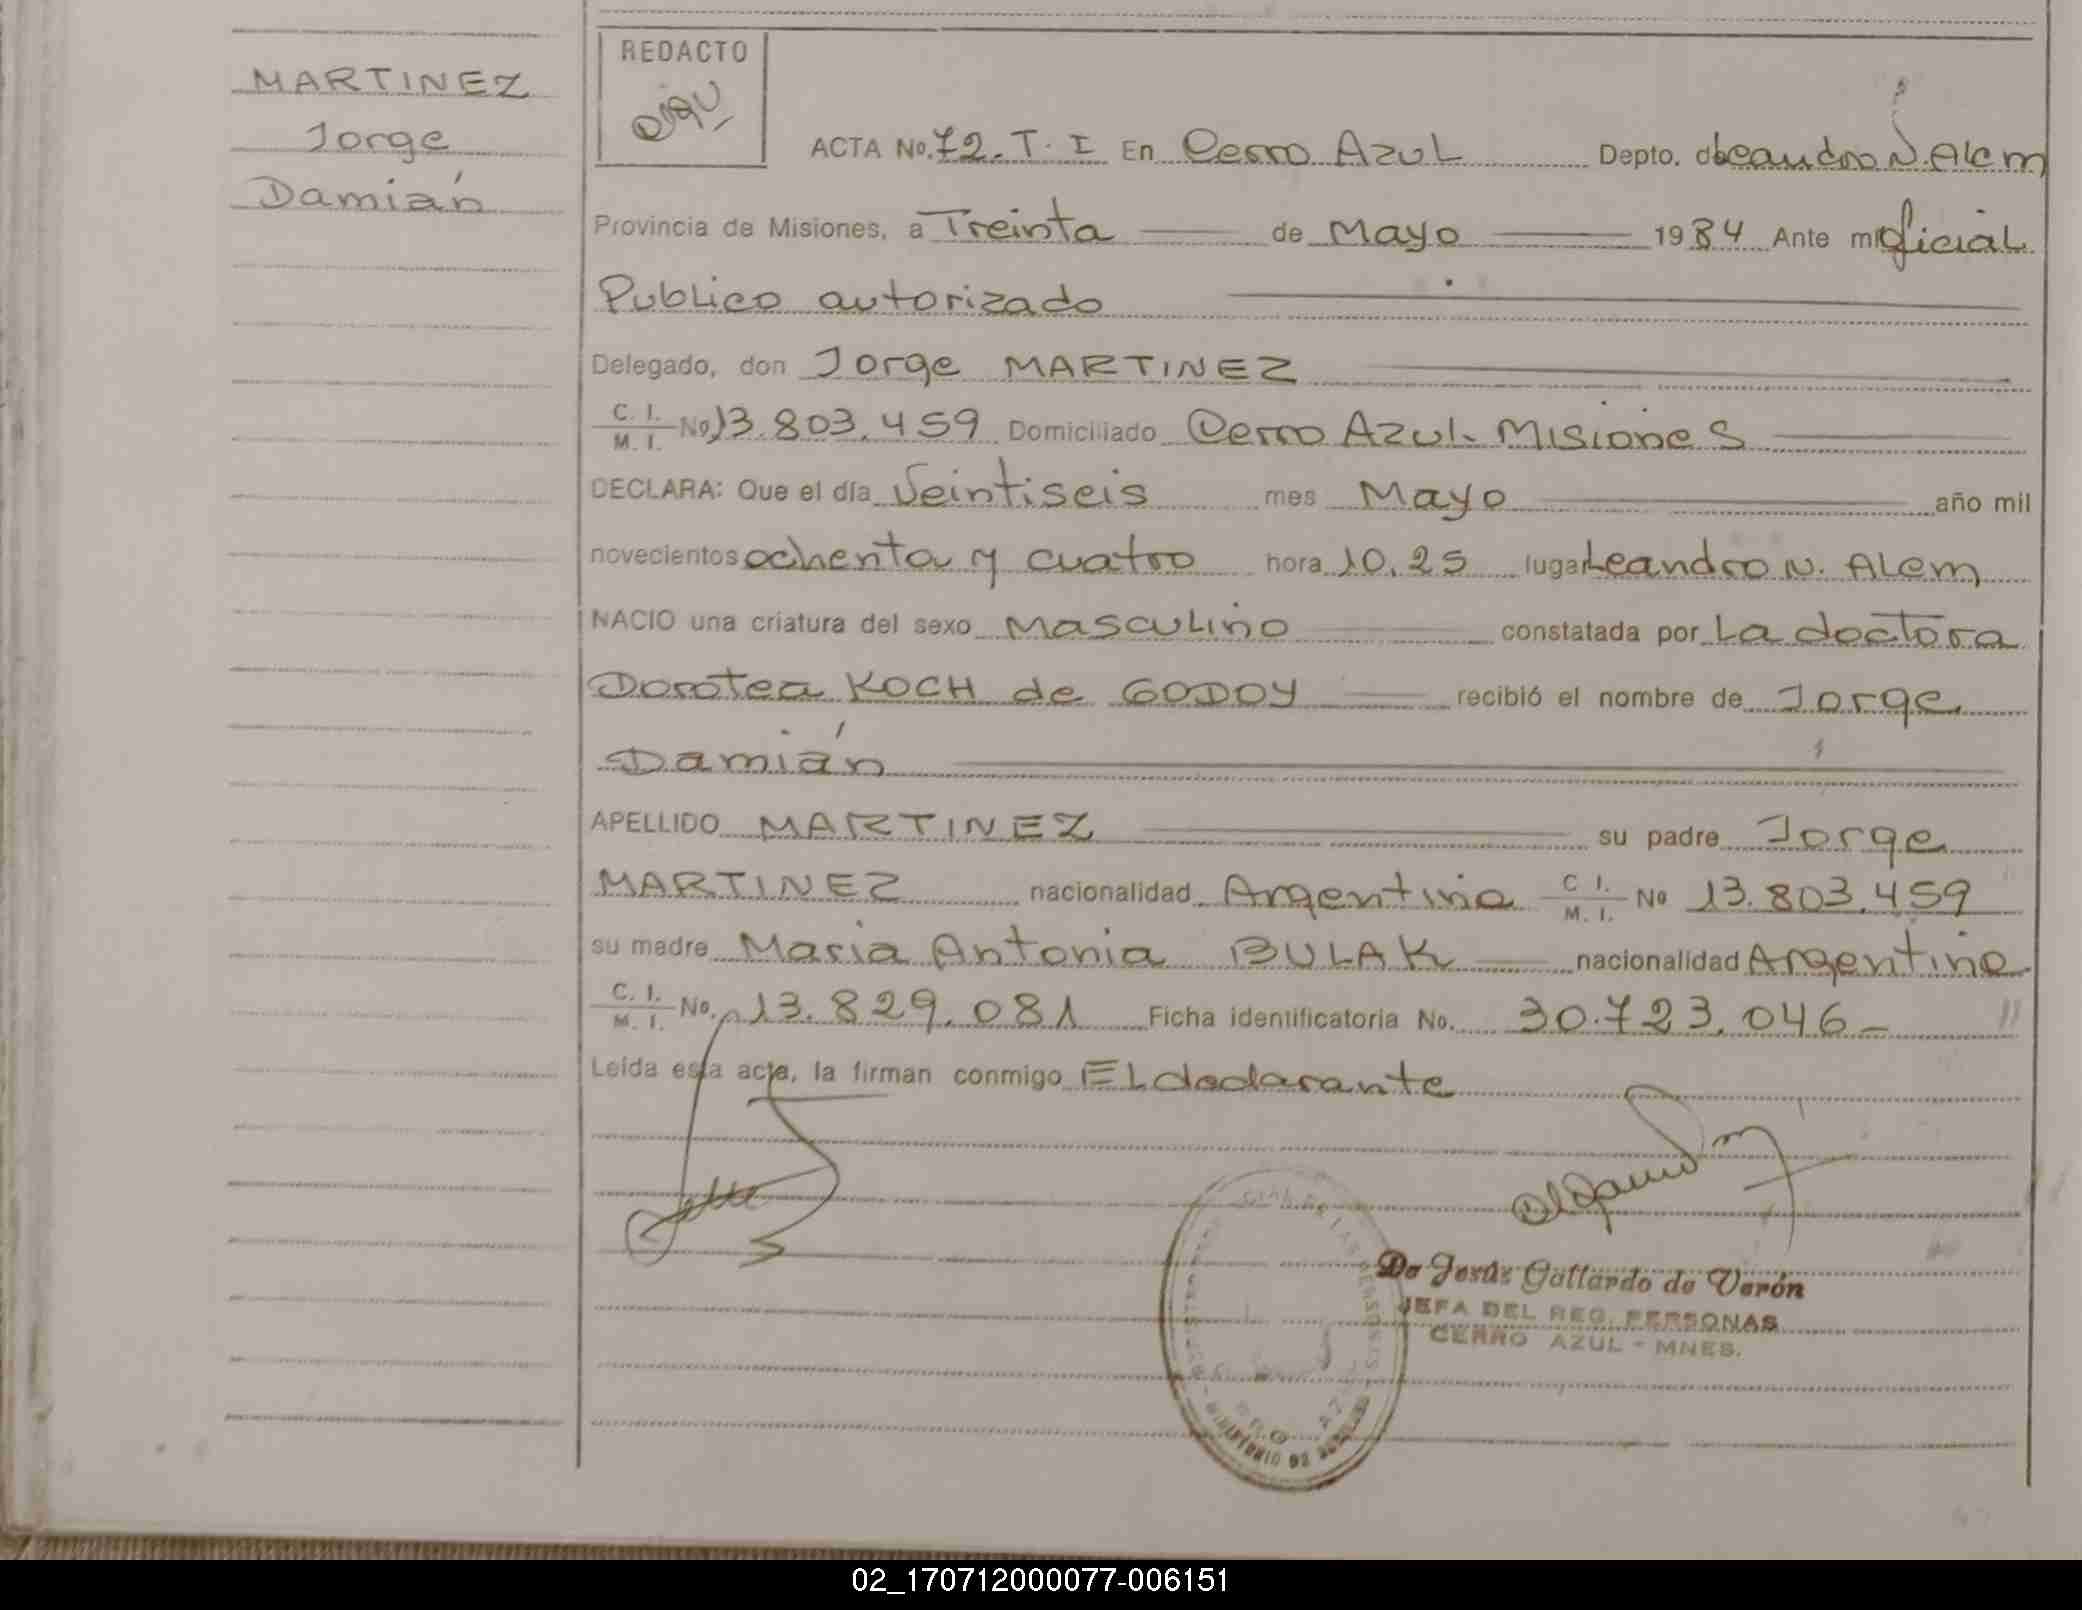 MARTINEZ
Jorge
Damián
REDACTO
ACTA No. 72. T. I En Cerro Azul Depto. de Leandro N. Alem
Provincia de Misiones, a Treinta de Mayo 1984 Ante mi Oficial
Publico autorizado
Delegado, don Jorge MARTINEZ
C. I. M. I. No 13.803.459 Domiciliado Cerro Azul. Misiones
DECLARA: Que el día Veintiseis mes Mayo año mil
novecientos ochenta y cuatro hora 10.25 lugar Leandro N. Alem
NACIO una criatura del sexo Masculino constatada por La doctora
Dorotea KOCH de GODOY recibió el nombre de Jorge
Damián
APELLIDO MARTINEZ su padre Jorge
MARTINEZ nacionalidad Argentina C I. M. I. No 13.803.459
su madre Maria Antonia BULAK nacionalidad Argentina
C. I. M. I. No. 13.829.081 Ficha identificatoria No. 30.723.046-
Leída esta acta, la firman conmigo EL declarante
De Jesús Gallardo de Verón
JEFA DEL REG. PERSONAS
CERRO AZUL - MNES.
MINISTERIO DE
02_170712000077-006151